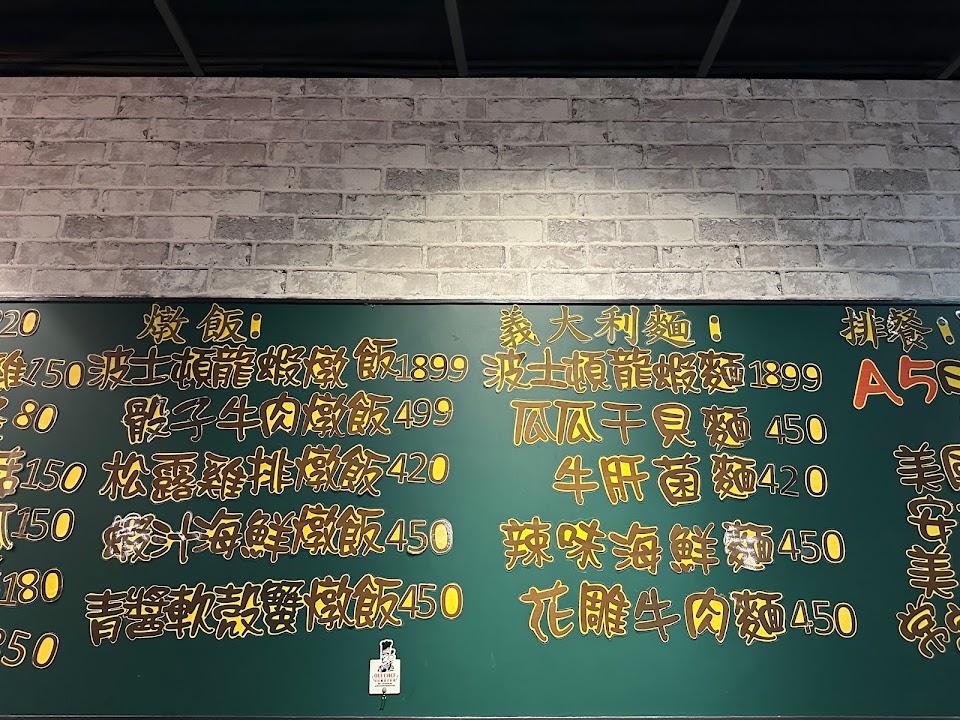 220
燉飯:
義大利麵:
排餐:
雞150
波士頓龍蝦燉飯1899
波士頓龍蝦麵1899
A5
80
骰子牛肉燉飯499
呱呱干貝麵 450
150
松露雞排燉飯420
牛肝菌麵420
美國
150
蝦汁海鮮燉飯450
辣味海鮮麵450
安
180
青醬軟殼蟹燉飯450
花雕牛肉麵450
美
350